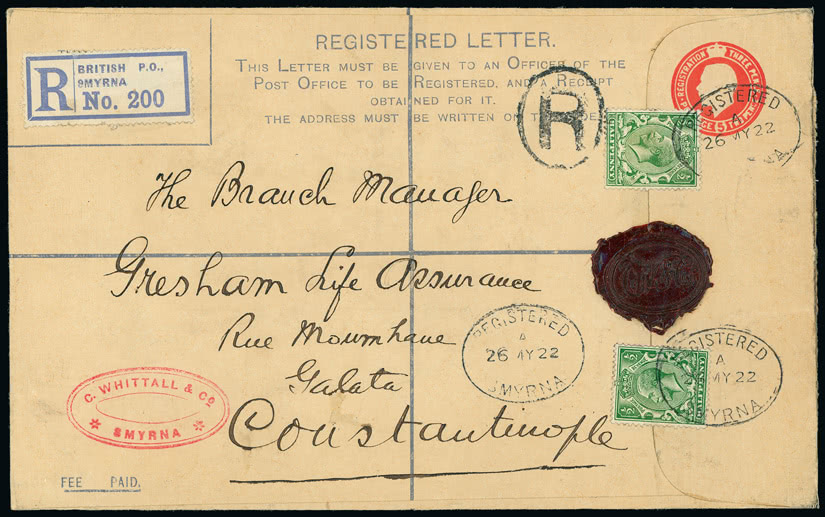 REGISTERED LETTER.
THIS LETTER MUST BE GIVEN TO AN OFFICER OF THE
POST OFFICE TO BE REGISTERED, AND A RECEIPT
OBTAINED FOR IT.
THE ADDRESS MUST BE WRITTEN ON
R
BRITISH P.O.,
SMYRNA
No. 200
R
REGISTRATION THREE PEN
REGISTERED
A
26 MY 22
NA
HALFPENNY
½
The Branch Manager
Gresham Life Assurance
Rue Moumhane
Galata
Constantinople
REGISTERED
A
26 MY 22
SMYRNA
½
HALFPENNY
REGISTERED
A
MY 22
MYRNA
C. WHITTALL & Co
SMYRNA
FEE PAID.